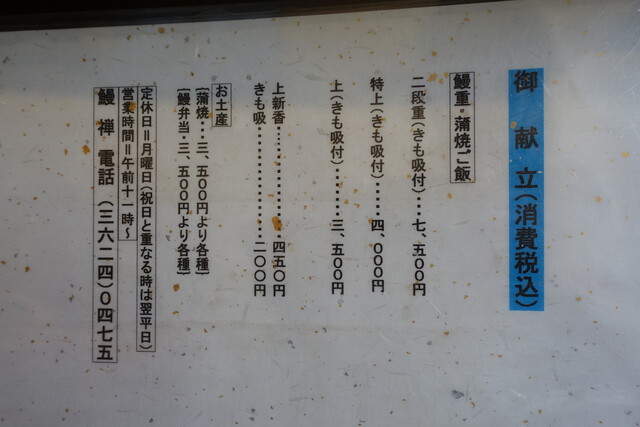 御献立(消費税込)
鰻重・蒲焼ご飯
二段重(きも吸付)・・・七、五〇〇円
特上(きも吸付)・・・・・四、〇〇〇円
上(きも吸付)・・・・・・・三、五〇〇円
上新香・・・・・・・・・・・・四五〇円
きも吸・・・・・・・・・・・・二〇〇円
お土産
[蒲焼・・三、五〇〇円より各種]
[鰻弁当・三、五〇〇円より各種]
定休日=月曜日(祝日と重なる時は翌平日)
営業時間=午前十一時~
鰻禅 電話 (三六二四)〇四七五